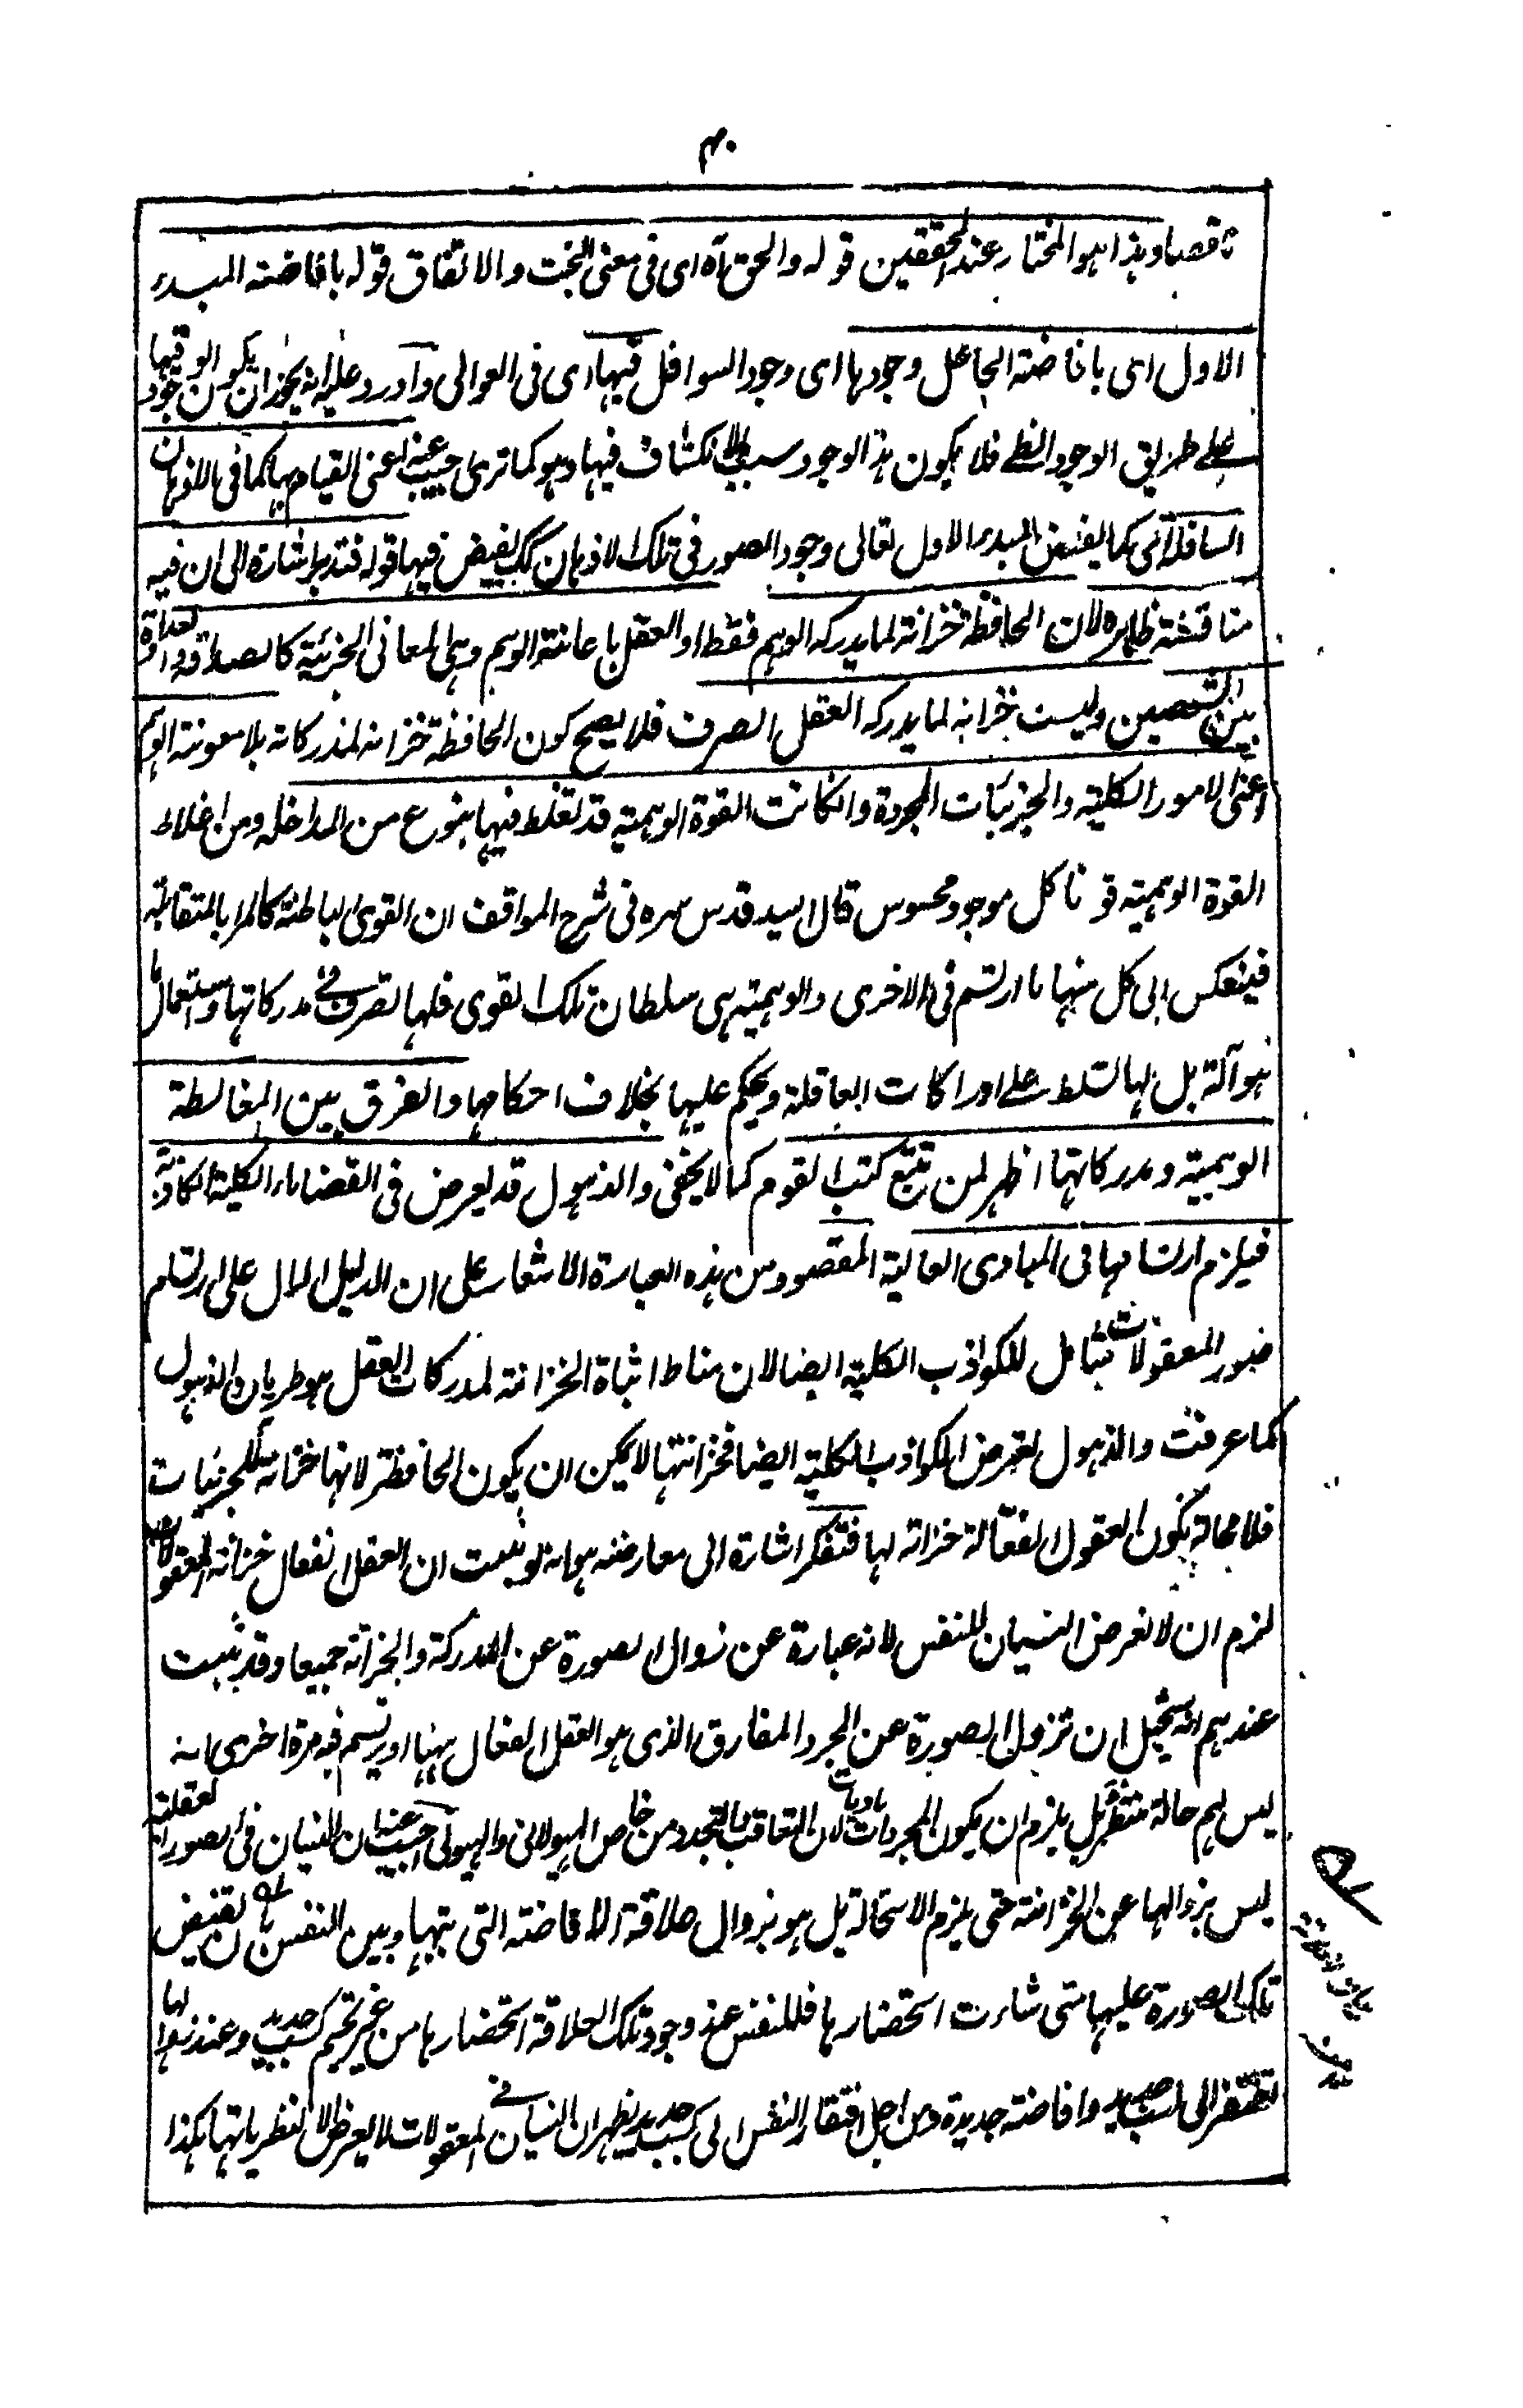 ۴۰
ناقصا وہذا ہو المختار عند المحققین قولہ والحق آہ ای فی معنی البخت والاتفاق قولہ بافاضتہ المبدء
الاول ای بافاضتہ الجاعل وجودہا ای وجود السوافل فیہا ای فی العوالی واورد علیہ انہ یجوز ان یکون الوجود فیہا
علے طریق الوجود الظلے فلا یکون ہذا الوجود سببا للانکشاف فیہا وہو کما تری اجیب عنہ اعنی القیام بہا کما فی الاذہان
السافلۃ ای کما یفیض المبدء الاول تعالی وجود الصور فی تلک الاذہان کک یفیض فیہا قولہ فتدبر اشارۃ الی ان فیہ
مناقشۃ ظاہرہ لان الحافظۃ خزانۃ لما یدرکہ الوہم فقط او العقل باعانۃ الوہم وہی المعانی الجزئیۃ کالصداقۃ والعداوۃ
بین الشخصین ولیست خزانہ لما یدرکہ العقل الصرف فلا یصح کون الحافظۃ خزانہ لمدرکاتہ بلا معونۃ الوہم
اعنی الامور الکلیۃ والجزئیات المجردۃ وانکانت القوۃ الوہمیۃ قد تغلط فیہا بنوع من المداخلہ ومن اغلاط
القوۃ الوہمیۃ قولنا کل موجود محسوس قال السید قدس سرہ فی شرح المواقف ان القوی الباطنۃ کالمرایا المتقابلۃ
فینعکس الی کل منہا ما ارتسم فی الاخری والوہمیۃ ہی سلطان تلک القوی فلہا تصرف فے مدرکاتہا واستعمال
ہو آلۃ بل لہا تسلط علے ادراکات العاقلۃ ویحکم علیہا بخلاف احکامہا والفرق بین المغالطۃ
الوہمیۃ ومدرکاتہا اظہر لمن تتبع کتب القوم کما لا یخفی والذہول قد یعرض فی القضایاء الکلیۃ الکاذبۃ
فیلزم ارتسامہا فی المبادی العالیۃ المقصود من ہذہ العبارۃ الاشعار علی ان الدلیل الدال علی ارتسام
صور المعقولات شامل للکواذب الکلیۃ ایضا لان مناط اثباۃ الخزانۃ لمدرکات العقل ہو طریان الذہول
کما عرفت والذہول یعرض الکواذب الکلیۃ ایضا فخزانتہا لا یمکن ان یکون الحافظۃ لانہا خزانۃ للجزئیات
فلا محالۃ یکون العقول الفعالۃ خزانۃ لہا فتفکر اشارۃ الی معارضہ ہو انہ لو ثبت ان العقل الفعال خزانۃ المعقولات
لزم ان لا یعرض النسیان للنفس لانہ عبارۃ عن زوال الصورۃ عن المدرکۃ والخزانۃ جمیعا وقد ثبت
عندہم انہ یستحیل ان تزول الصورۃ عن المجرد المفارق الذی ہو العقل الفعال ہہنا او یرتسم فیہ مرۃ اخری انہ
لیس لہم حالۃ منتظرۃ بل یلزم ان یکون المجردات مادیات لان التعاقب والتجدد من خواص الہیولانی والہیولی اجیب عنہ بان النسیان فی الصور العقلیۃ
لیس بزوالہا عن الخزانۃ حتی یلزم الاستحالۃ بل ہو بزوال علاقۃ الافاضتہ التی بینہا وبین النفس بان یفیض
تلک الصورۃ علیہا متی شاءت استحضارہا فللنفس عند وجود تلک العلاقۃ استحضارہا من غیر تجشم کسب جدید وعند زوالہا
تفتقر الی کسب جدید وافاضتہ جدیدۃ ومن اجل افتقار النفس الی کسب جدید یظہر ان النسیان فے المعقولات لا یعرض الا لنظریاتہا ہکذا